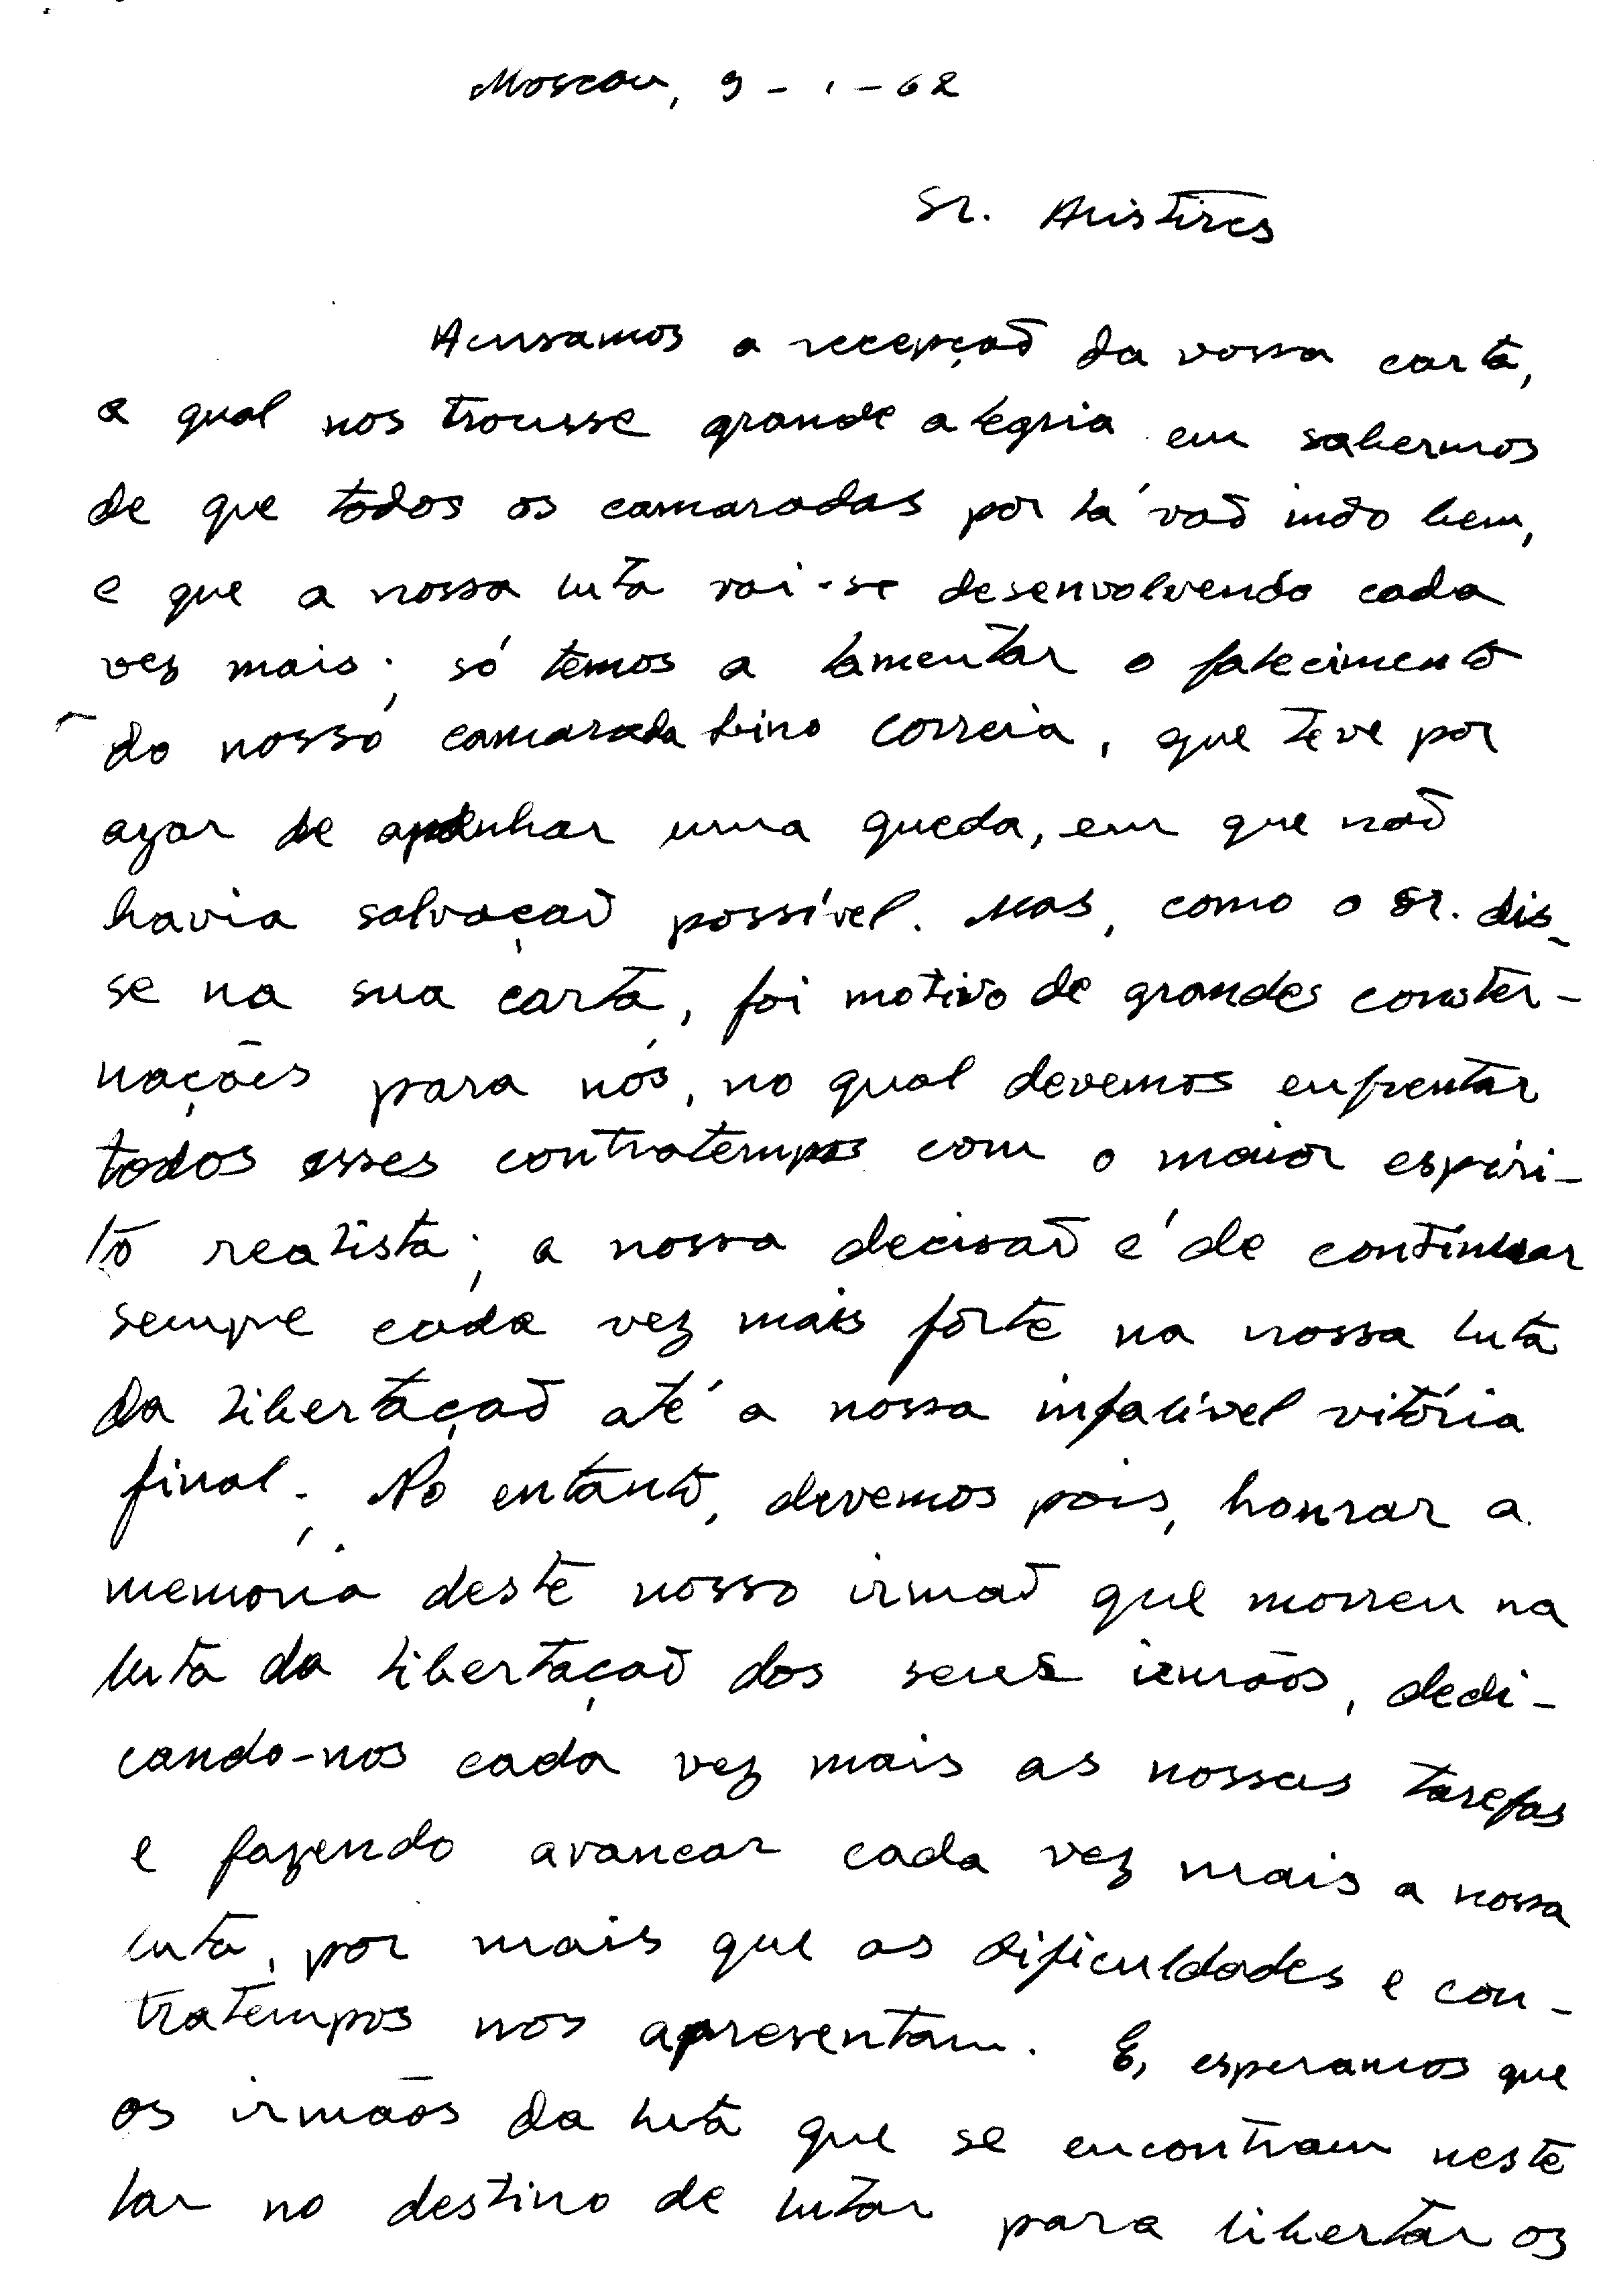 Moscou, 9 - 1 - 62
Sr. Aristires
Acusamos a recepçaõ da vossa carta,
a qual nos trousse grande alegria em sabermos
de que todos os camaradas por lá vaõ indo bem,
e que a nossa luta vai-se desenvolvendo cada
vez mais; só temos a lamentar o falecimento
do nosso camarada Lino Correia, que teve por
azar de apanhar uma queda, em que naõ
havia salvaçaõ possível. Mas, como o sr. dis-
se na sua carta, foi motivo de grandes conster-
nações para nós, no qual devemos enfrentar
todos esses contratempos com o maior espiri-
to realista; a nossa decisaõ é de continuar
sempre cada vez mais forte na nossa luta
da libertaçaõ até a nossa infalível vitória
final; No entanto, devemos pois, honrar a
memória deste nosso irmaõ que morreu na
luta da libertaçaõ dos seus irmãos, dedi-
cando-nos cada vez mais as nossas tarefas
e fazendo avancar cada vez mais a nossa
luta, por mais que as dificuldades e con-
tratempos nos apresentam. E, esperamos que
os irmãos da luta que se encontram neste
lar no destino de lutar para libertar os